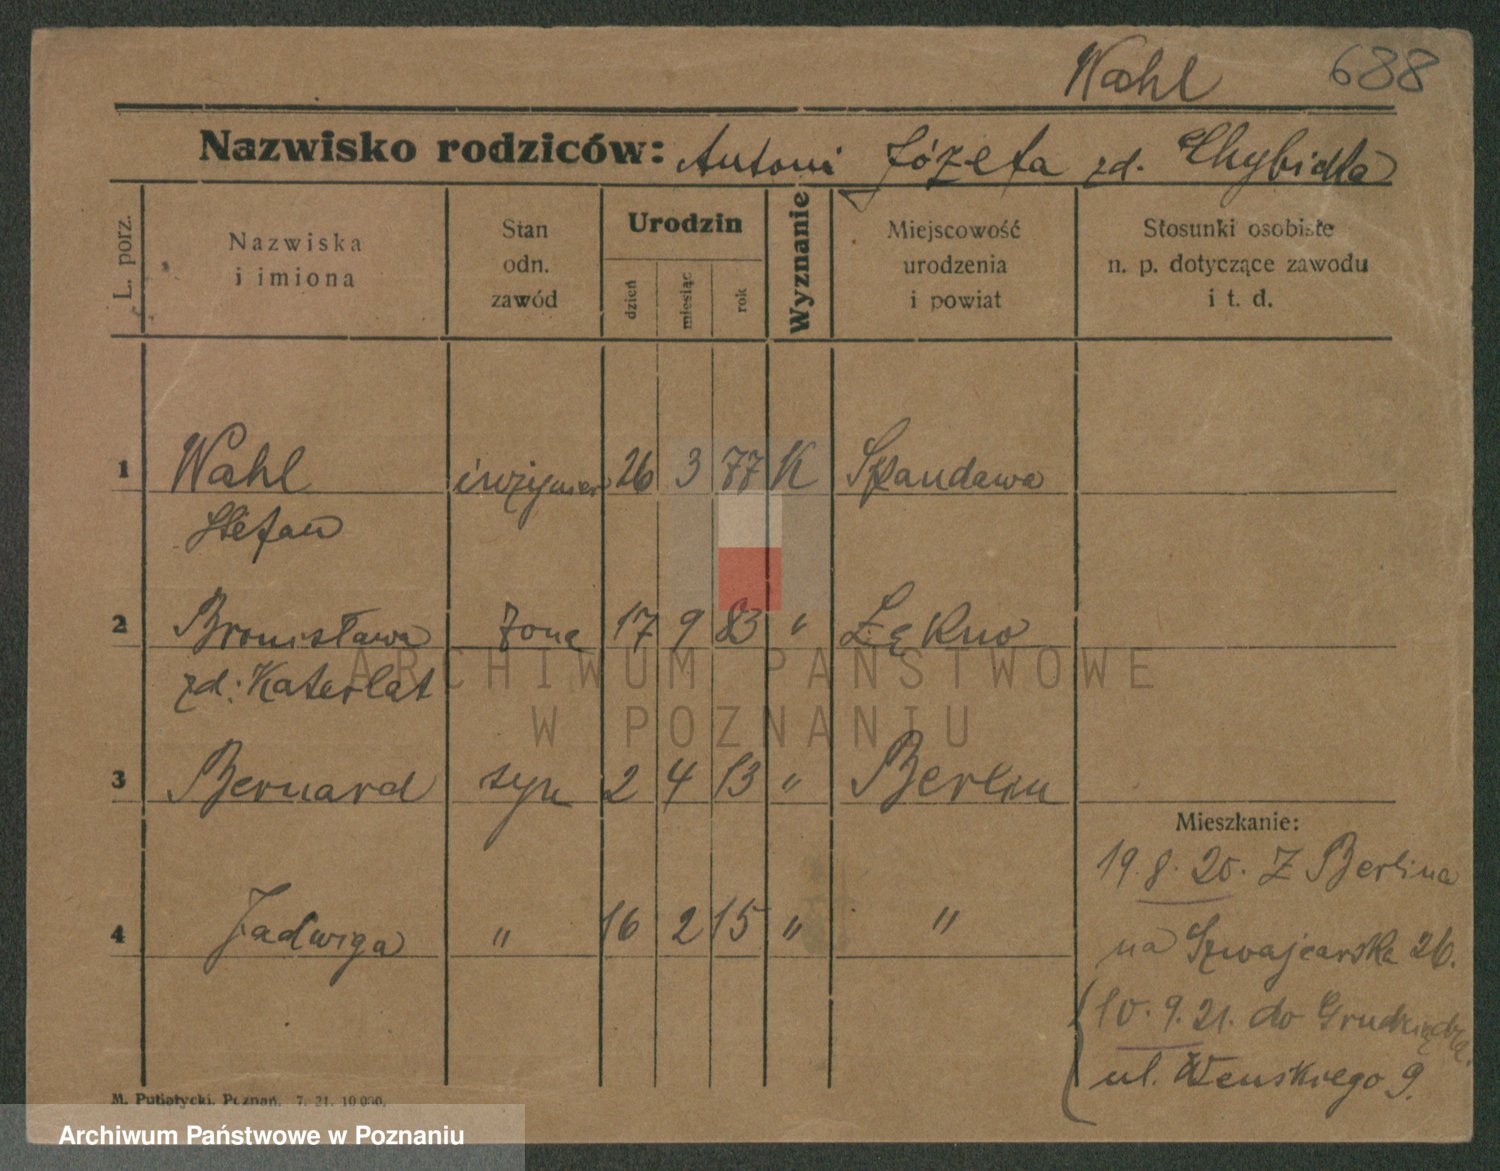 Wahl 688
Nazwisko rodziców: Antoni Józefa zd. Chybidła
L. porz.
Nazwiska i imiona
Stan odn. zawód
Urodzin
dzień miesiąc rok
Wyznanie
Miejscowość urodzenia i powiat
Stosunki osobiste n. p. dotyczące zawodu i t. d.
1 Wahl inżynier 26 3 77 K Szpandawa
Stefan
2 Bronisława żona 17 9 83 " Łękno
zd. Katerlat
3 Bernard syn 2 4 13 " Berlin
4 Jadwiga " 16 2 15 " "
Mieszkanie:
19.8.20. Z Berlina
na Szwajcarska 26.
10.9.21. do Grudziądza
ul. 9.
M. Putiatycki. Poznań. 7. 21. 10 000.
ARCHIWUM PAŃSTWOWE
W POZNANIU
Archiwum Państwowe w Poznaniu